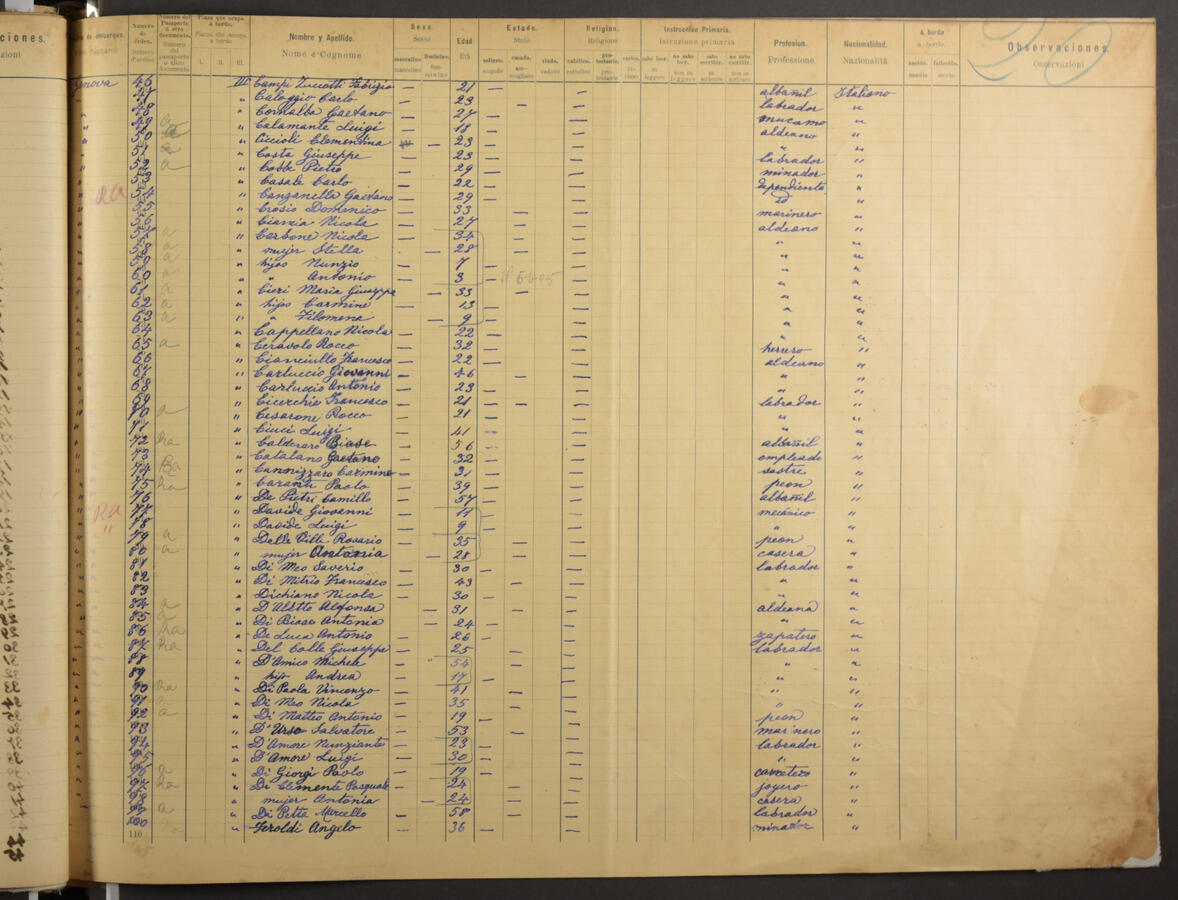 ciones.
zioni
Número de órden.
Numero d'ordine
Número del Pasaporte ú otro documento.
Numero del passaporto o altro documento
Plaza que ocupa á bordo.
Piazza che occupa a bordo
I. II. III.
Nombre y Apellido.
Nome e Cognome
Sexo.
Sesso
masculino femenino.
Edad
Età
Estado.
Stato
soltero. casado. viudo.
Religion.
Religione
católica. protestante. varios.
Instruccion Primaria.
Istruzione primaria
sabe leer. no sabe leer. sabe escribir. no sabe escribir.
Profesion.
Professione
Nacionalidad.
Nazionalità
á bordo
a bordo.
nacido. fallecido.
Observaciones.
Osservazioni
Genova 46 III Campi Zuccotti Fabrizio — 21 — — albañil Italiano
47 " Caloggio Carlo — 23 — — labrador "
48 " Cornalba Gaetano — 27 — — mucamo "
49 a " Calamante Luigi — 18 — — aldeano "
50 a " Ciccioli Clementina — 23 — — " "
51 a " Costa Giuseppe — 23 — — labrador "
52 a " Cobbe Pietro — 29 — — minador "
53 " Casale Carlo — 22 — — dependiente "
54 " Canzanella Gaetano — 29 — — do "
55 " Crosio Domenico — 33 — — marinero "
56 " Cianzia Nicola — 27 — — aldeano "
57 a " Carbone Nicola — 34 — — " "
58 a " mujer Stella — 28 — — " "
59 a " hijos Nunzio — 7 — — " "
60 a " " Antonio — 3 — — " "
61 a " Cieri Maria Giuseppa — 33 — — " "
62 a " hijos Carmine — 13 — — " "
63 a " " Filomena — 9 — — " "
64 " Cappellano Nicola — 22 — — " "
65 a " Ceravolo Rocco — 32 — — herrero "
66 " Cianciullo Francesco — 22 — — aldeano "
67 " Carluccio Giovanni — 46 — — " "
68 " Carluccio Antonio — 23 — — " "
69 " Cicerchia Francesco — 21 — — labrador "
70 a " Cesarone Rocco — 21 — — " "
71 " Ciuci Luigi — 41 — — " "
72 ra " Calderaro Biase — 56 — — albañil "
73 " Catalano Gaetano — 32 — — empleado "
74 Ra " Cannizzaro Carmine — 31 — — sastre "
75 ra " Caranti Paolo — 39 — — peon "
76 " De Pietri Camillo — 57 — — albañil "
77 " Davide Giovanni — 11 — — mecánico "
78 " Davide Luigi — 9 — — " "
79 a " Delle Ville Rosario — 35 — — peon "
80 a " mujer Antonia — 28 — — casera "
81 " Di Meo Saverio — 30 — — labrador "
82 " Di Mitrio Francesco — 43 — — " "
83 " Dichiano Nicola — 30 — — " "
84 a " D'Aletto Alfonsa — 31 — — aldeana "
85 a " Di Biase Antonia — 24 — — " "
86 ra " De Luca Antonio — 26 — — zapatero "
87 ra " Del Colle Giuseppe — 25 — — labrador "
88 " D'Amico Michele — 54 — — " "
89 " hijo Andrea — 17 — — " "
90 ra " Di Paola Vincenzo — 41 — — " "
91 " Di Meo Nicola — 35 — — " "
92 a " Di Matteo Antonio — 19 — — peon "
93 " D'Urso Salvatore — 53 — — marinero "
94 " D'Amore Nunziante — 23 — — labrador "
95 " D'Amore Luigi — 30 — — " "
96 a " Di Giorgi Paolo — 19 — — carretero "
97 ra " Di Clemente Pasquale — 24 — — joyero "
98 " mujer Antonia — 24 — — casera "
99 a " Di Petta Marcello — 58 — — labrador "
100 " Feroldi Angelo — 36 — — minador "
110